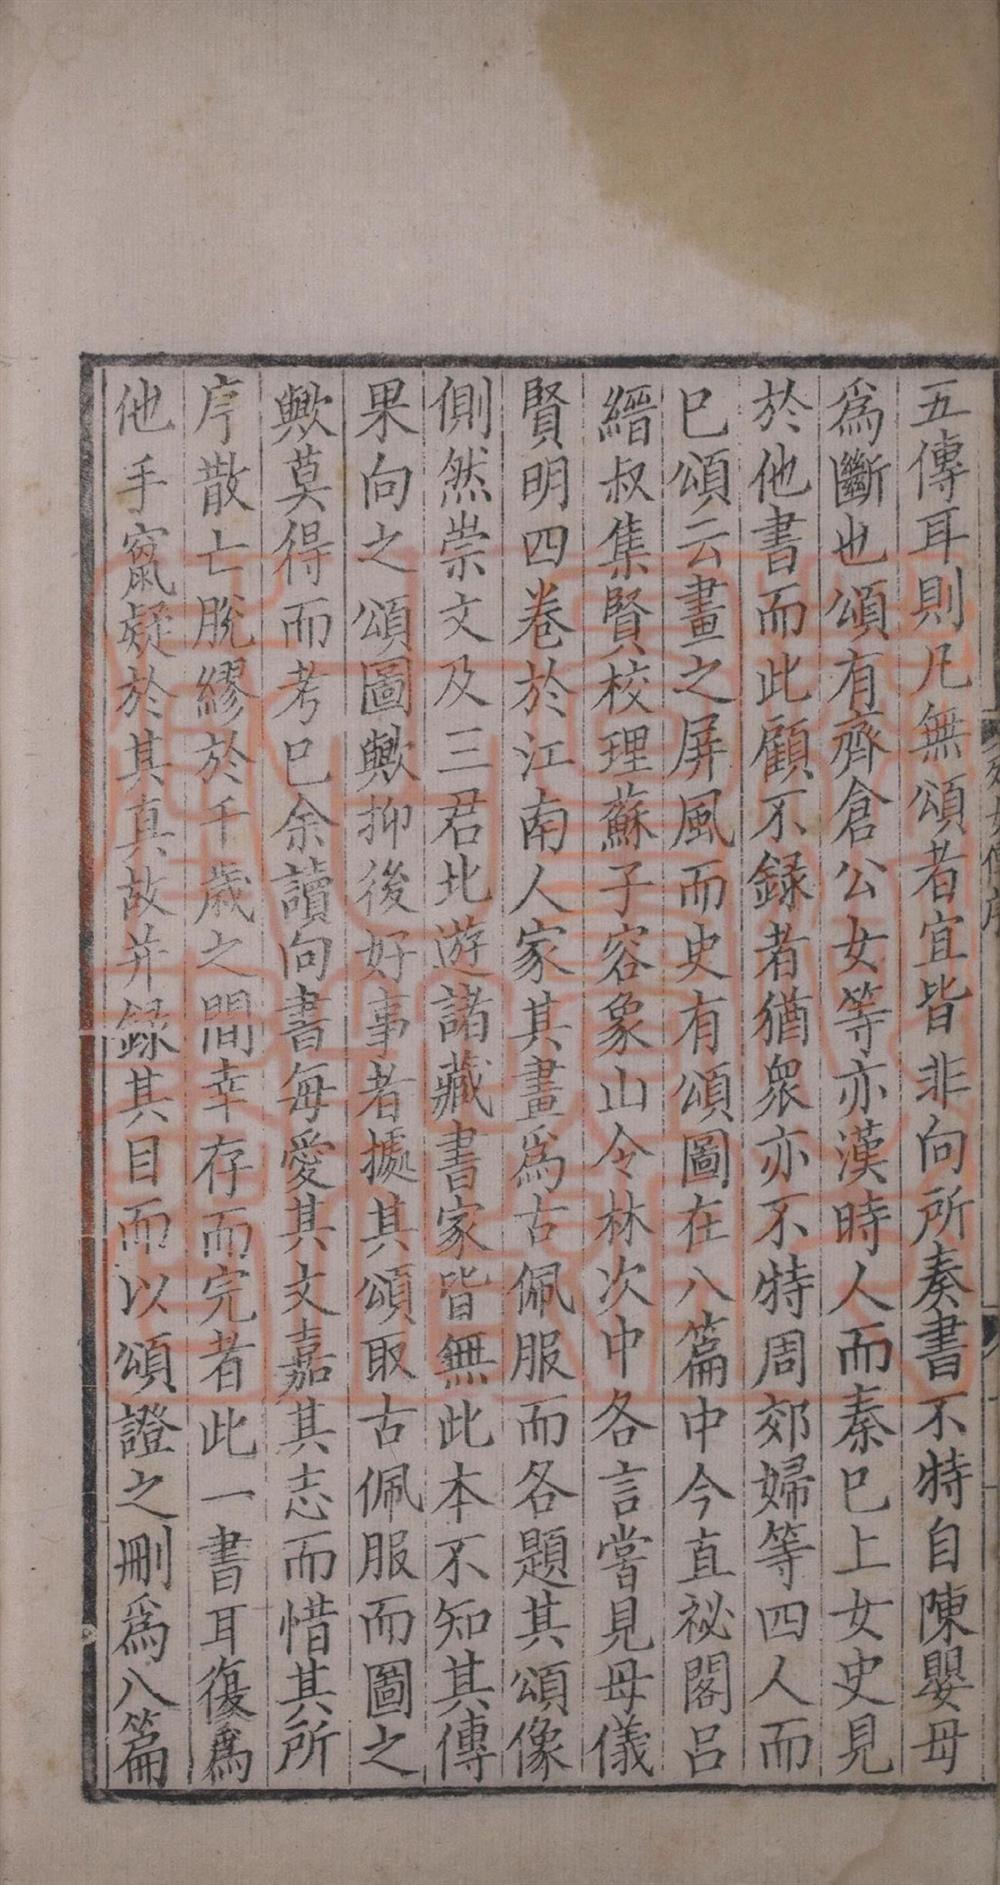 五傳耳則凡無頌者宜皆非向所奏書不特自陳嬰母
爲斷也頌有齊倉公女等亦漢時人而秦已上女史見
於他書而此顧不録者猶衆亦不特周郊婦等四人而
已頌云畫之屏風而史有頌圖在八篇中今直祕閣呂
縉叔集賢校理蘇子容象山令林次中各言嘗見母儀
賢明四卷於江南人家其畫爲古佩服而各題其頌像
側然崇文及三君北遊諸藏書家皆無此本不知其傳
果向之頌圖歟抑後好事者據其頌取古佩服而圖之
歟莫得而考已余讀向書每愛其文嘉其志而惜其所
序散亡脫繆於千歲之間幸存而完者此一書耳復爲
他手竄疑於其真故并録其目而以頌證之刪爲八篇